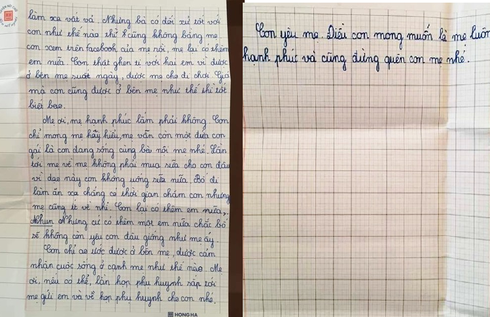 làm xa vất vả. Nhưng bà có đối xử tốt với
con như thế nào thì cũng không bằng mẹ.
con xem trên facebook của mẹ rồi, mẹ lại có thêm
em nữa. Con thật ghen tị với hai em vì được
ở bên mẹ suốt ngày, được mẹ cho đi chơi. Giá
mà con cũng được ở bên mẹ như thế thì tốt
biết bao.
Mẹ ơi, mẹ hạnh phúc lắm phải không. Con
chỉ mong mẹ hãy hiểu, mẹ vẫn còn một đứa con
gái là con đang sống cùng bà nội mẹ nhé. Lần
tới mẹ về mẹ không phải mua sữa cho con đâu
vì dạo này con không uống sữa nữa. Bố đi
làm ăn xa chẳng có thời gian chăm con nhưng
mẹ cũng ít về nhỉ. Con lại có thêm em nữa,
Nhưng cứ có thêm một em nữa chắc bố
sẽ không còn yêu con đâu giống như mẹ ấy.
Con chỉ ao ước được ở bên mẹ, được cảm
nhận cuộc sống ở cạnh mẹ như thế nào. Mẹ
ơi, nếu có thể, lần họp phụ huynh sắp tới
mẹ gửi em và về họp phụ huynh cho con nhé.
HONG HA
Con yêu mẹ. Điều con mong muốn là mẹ luôn
hạnh phúc và cũng đừng quên con mẹ nhé.